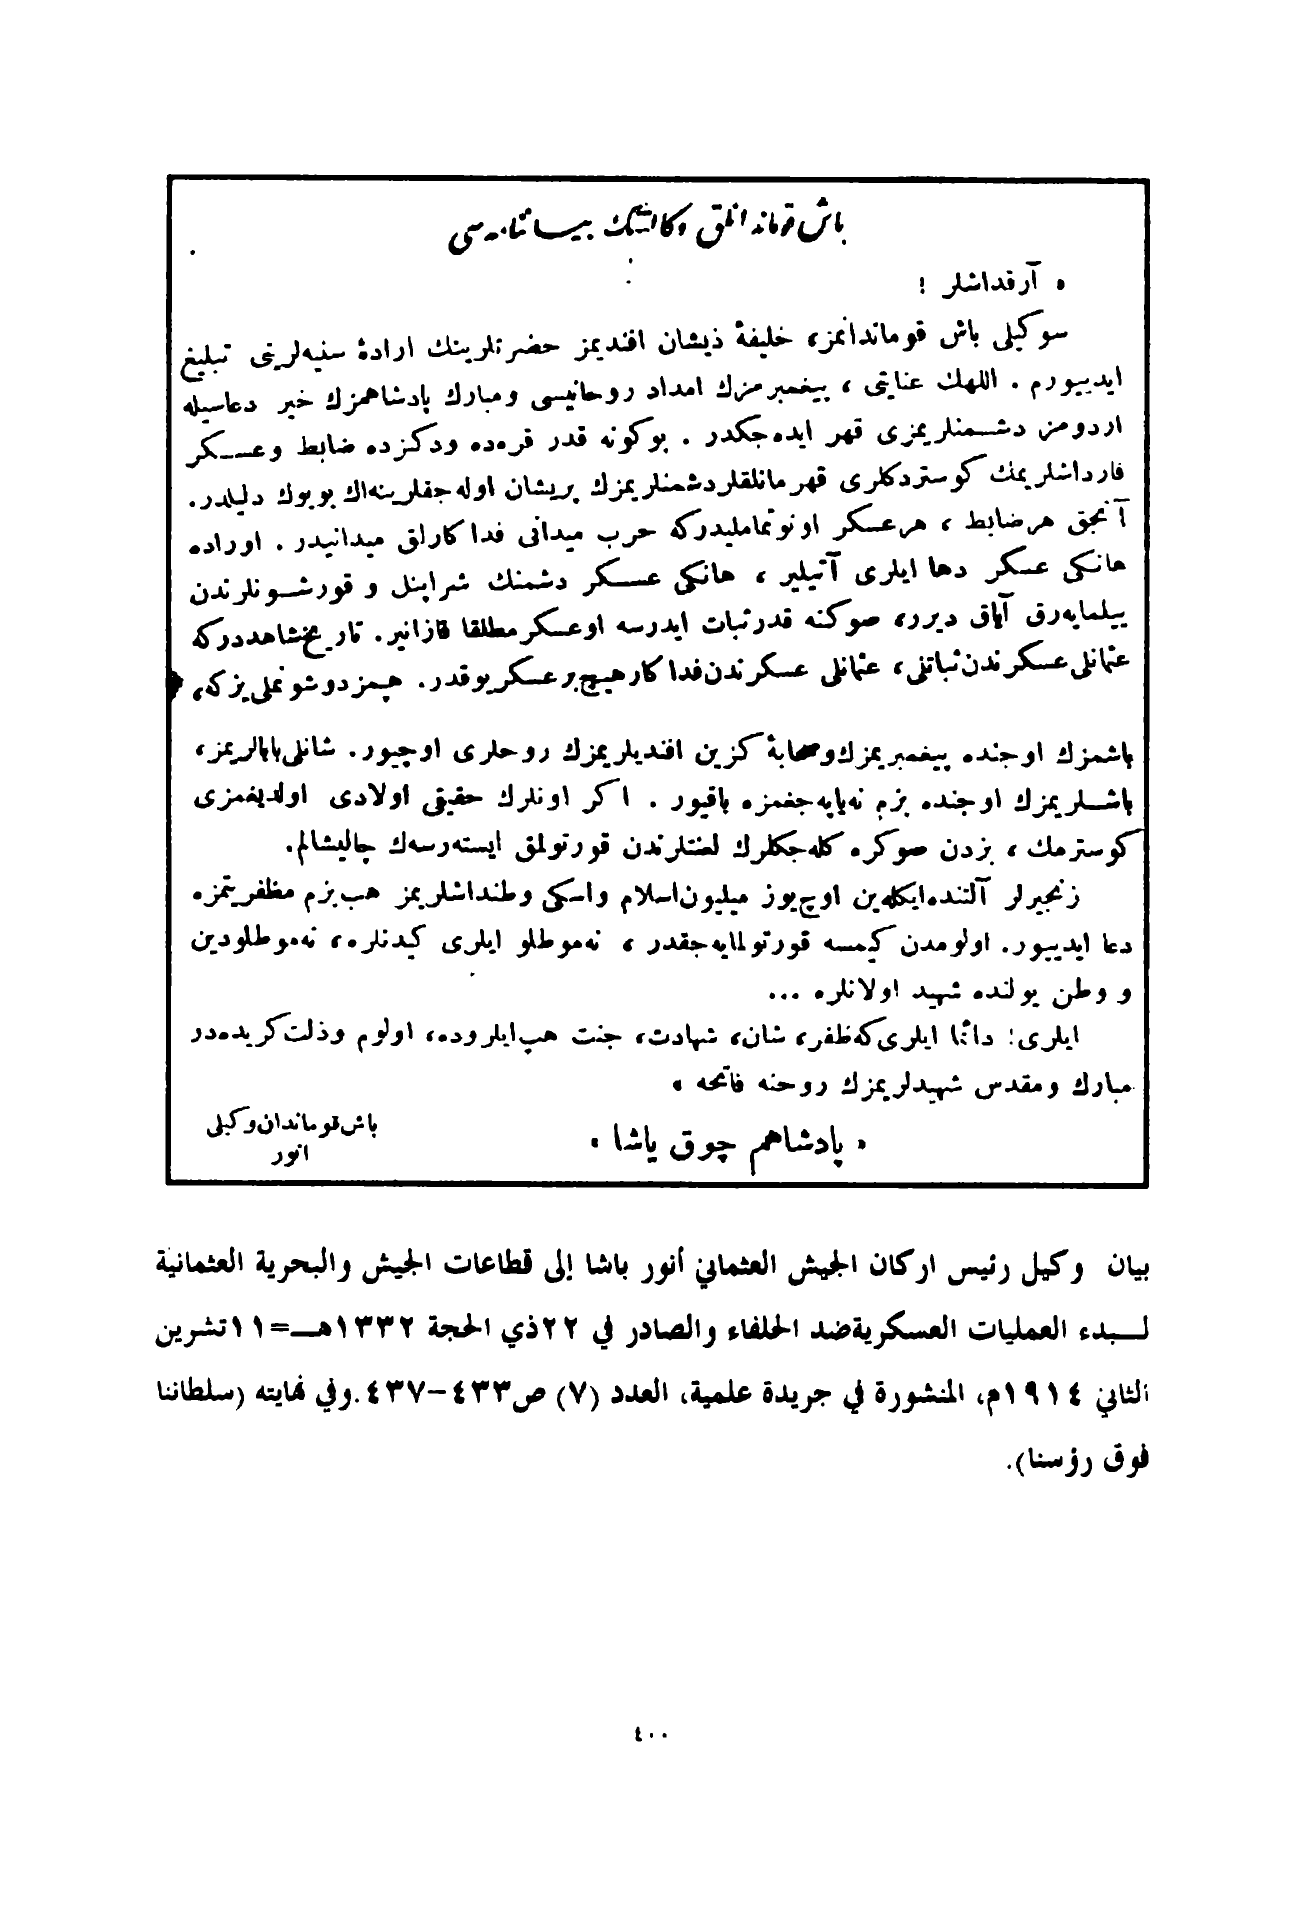 باش قوماندانلق وكالتنك بيساننامه‌سى
« آرقداشلر !
سوكيلى باش قوماندانمز، خليفهٔ ذيشان افنديمز حضرتلرينك ارادهٔ سنيه‌لرينى تبليغ
ايدييورم . اللهك عنايتى ، پيغمبرمزك امداد روحانيسى ومبارك پادشاهمزك خير دعاسيله
اردومز دشمنلريمزى قهر ايده‌جكدر . بوكونه قدر قره‌ده ودكزده ضابط وعسكر
قارداشلريمك كوستردكلرى قهرمانلقلر دشمنلريمزك پريشان اوله‌جقلرينه اك بويوك دليلدر.
آنجق هرضابط ، هرعسكر اونوتماملیدركه حرب ميدانى فداكارلق ميدانيدر . اوراده
هانكى عسكر دها ايلرى آتيلير ، هانكى عسكر دشمنك شراپنل و قورشونلرندن
ييلمايه‌رق آياق ديرر، صوكنه قدر ثبات ايدرسه اوعسكر مطلقا قازانير. تاريخ شاهددركه
عثمانلى عسكرندن ثباتلى، عثمانلى عسكرندن فداكار هيچ بر عسكر يوقدر. هپمز دوشونملى‌يزكه،
باشمزك اوجنده پيغمبريمزك وصحابهٔ كزين افنديلريمزك روحلرى اوچيور. شانلى بابالريمز،
باشلريمزك اوجنده بزم نه‌ياپه‌جغمزه باقيور . اكر اونلرك حقيقى اولادى اولديغمزى
كوسترمك ، بزدن صوكره كله‌جكلرك لعنتلرندن قورتولمق ايسته‌رسه‌ك چاليشالم.
زنجيرلر آلتنده‌ايكله‌ين اوچ‌يوز ميليون اسلام واسكى وطنداشلريمز هپ بزم مظفريتمزه
دعا ايدييور. اولومدن كيمسه قورتولمايه‌جقدر ، نه‌موطلو ايلرى كيدنلره، نه‌موطلودين
و وطن يولنده شهيد اولانلره ...
ايلرى! دائما ايلرى كه ظفر، شان، شهادت، جنت هپ ايلروده، اولوم وذلت كريده‌در
مبارك ومقدس شهيدلريمزك روحنه فاتحه »
« پادشاهم چوق ياشا »
باش قوماندان وكيلى
انور
بيان وكيل رئيس اركان الجيش العثماني أنور باشا إلى قطاعات الجيش والبحرية العثمانية
لــبدء العمليات العسكرية ضد الحلفاء والصادر في ٢٢ ذي الحجة ١٣٣٢هــ=١١ تشرين
الثاني ١٩١٤م، المنشورة في جريدة علمية، العدد (٧) ص٤٣٣-٤٣٧. وفي نهايته (سلطاننا
فوق رؤسنا).
٤٠٠